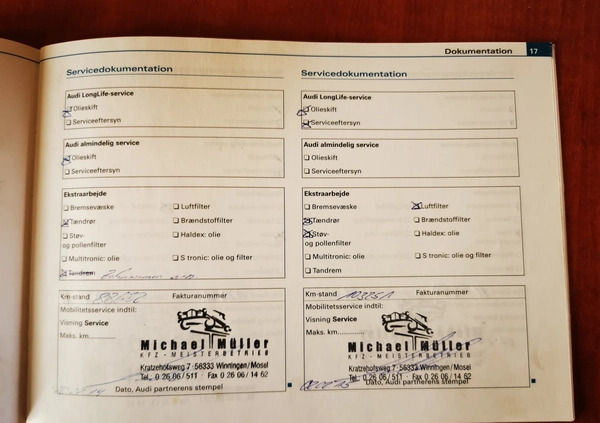 Dokumentation 17
Servicedokumentation
Audi LongLife-service
Olieskift
Serviceeftersyn
Audi almindelig service
Olieskift
Serviceeftersyn
Ekstraarbejde
Bremsevæske
Luftfilter
Tændrør
Brændstoffilter
Støv-
og pollenfilter
Haldex: olie
Multitronic: olie
S tronic: olie og filter
Tandrem
Km-stand
Fakturanummer
Mobilitetsservice indtil:
Visning Service
Maks. km
Michael Müller
KFZ - MEISTERBETRIEB
Kratzehofsweg 7 · 56333 Winningen/Mosel
Tel. 0 26 06 / 511 · Fax 0 26 06 / 14 62
Dato, Audi partnerens stempel
Servicedokumentation
Audi LongLife-service
Olieskift
Serviceeftersyn
Audi almindelig service
Olieskift
Serviceeftersyn
Ekstraarbejde
Bremsevæske
Luftfilter
Tændrør
Brændstoffilter
Støv-
og pollenfilter
Haldex: olie
Multitronic: olie
S tronic: olie og filter
Tandrem
Km-stand
Fakturanummer
Mobilitetsservice indtil:
Visning Service
Maks. km
Michael Müller
KFZ - MEISTERBETRIEB
Kratzehofsweg 7 · 56333 Winningen/Mosel
Tel. 0 26 06 / 511 · Fax 0 26 06 / 14 62
Dato, Audi partnerens stempel